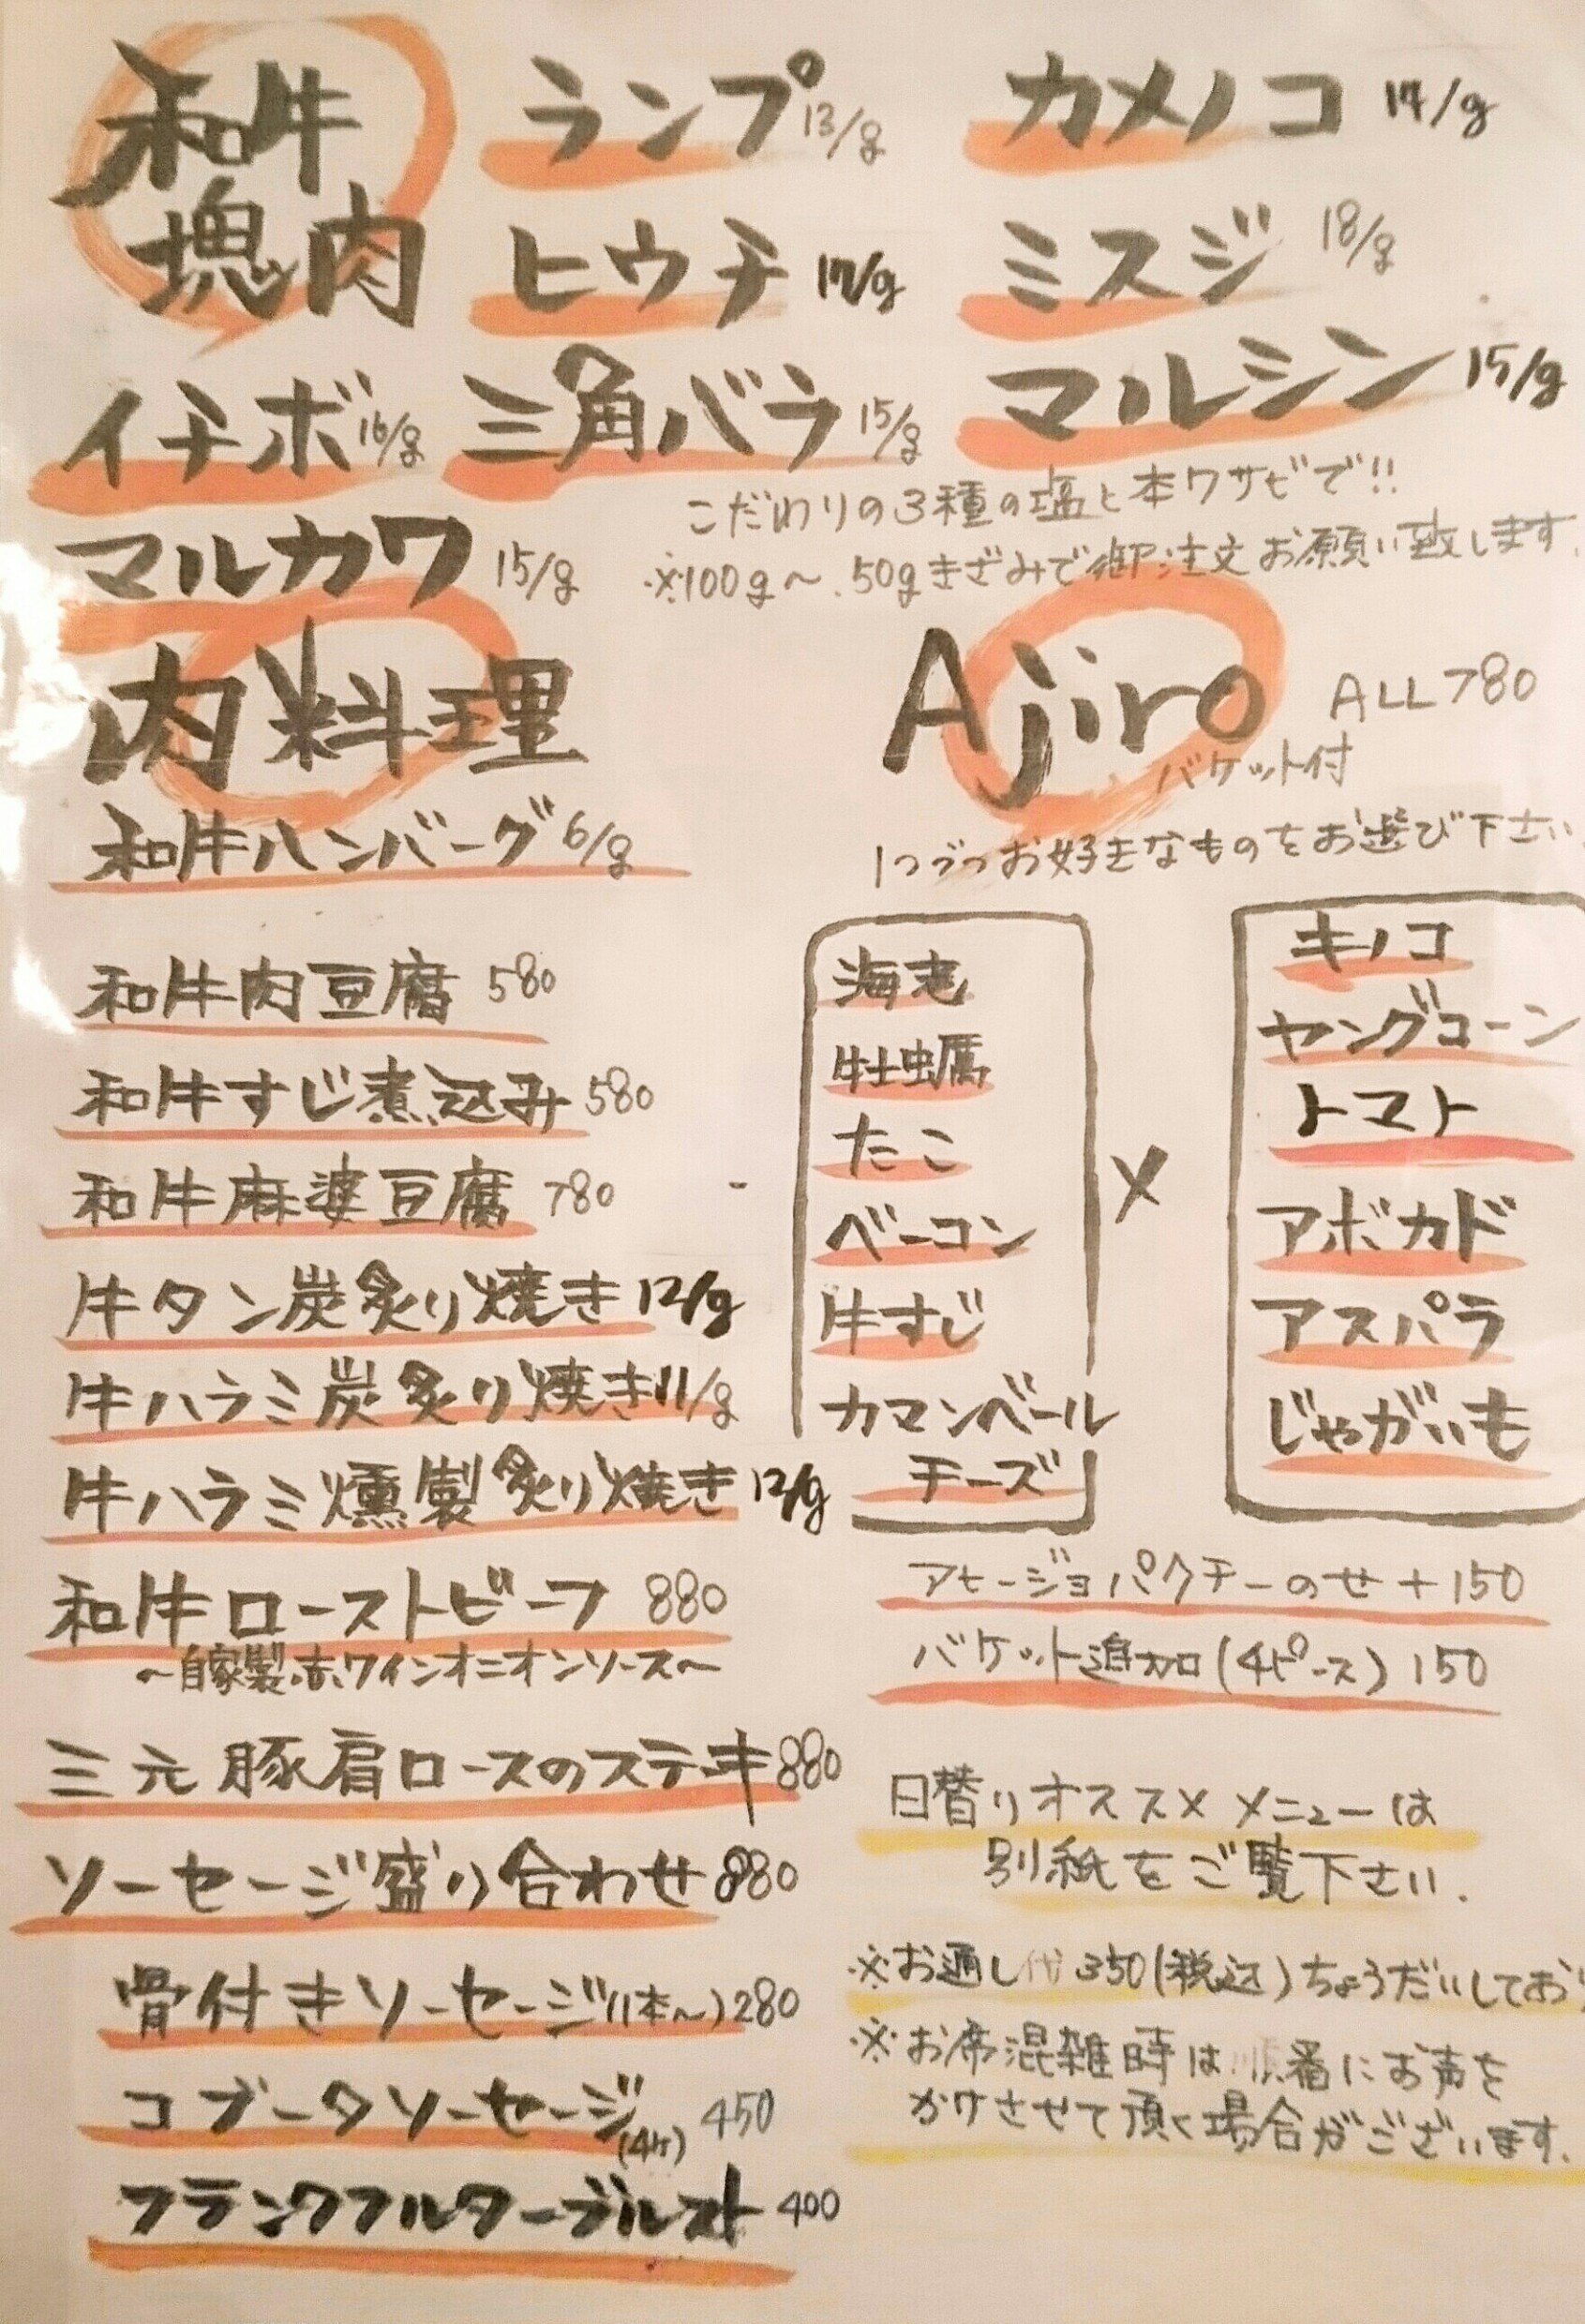 和牛
塊肉
ランプ 13/g
カメノコ 14/g
ヒウチ 17/g
ミスジ 18/g
イチボ 16/g
三角バラ 15/g
マルシン 15/g
マルカワ 15/g
こだわりの3種の塩と本ワサビで!!
※100g〜.50gきざみで御注文お願い致します.
肉料理
和牛ハンバーグ 6/g
和牛肉豆腐 580
和牛すじ煮込み 580
和牛麻婆豆腐 780
牛タン炭炙り焼き 12/g
牛ハラミ炭炙り焼き 11/g
牛ハラミ燻製炙り焼き 12/g
和牛ローストビーフ 880
〜自家製赤ワインオニオンソース〜
三元豚肩ロースのステーキ 880
ソーセージ盛り合わせ 880
骨付きソーセージ(1本〜) 280
コブータソーセージ(4ケ) 450
フランクフルターブルスト 400
Ajiro ALL780
バケット付
1つづつお好きなものをお選び下さい
海老
牡蛎
たこ
ベーコン
牛すじ
カマンベール
チーズ
×
キノコ
ヤングコーン
トマト
アボカド
アスパラ
じゃがいも
アヒージョパクチーのせ +150
バケット追加(4ピース) 150
日替りオススメメニューは
別紙をご覧下さい.
※お通し代350(税込)ちょうだいしており
※お席混雑時は順番にお声を
かけさせて頂く場合がございます.